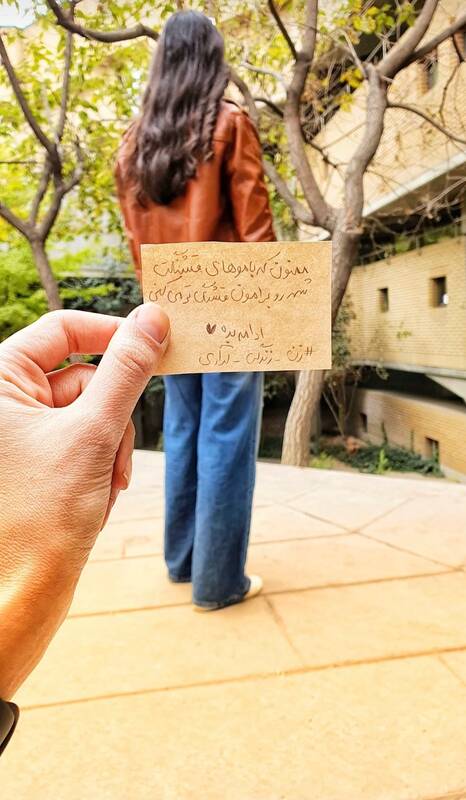 ممنون که با موهای قشنگت
شهر رو برامون قشنگ تر می کنی
ادامه بده ♥
#زن_زندگی_آزادی